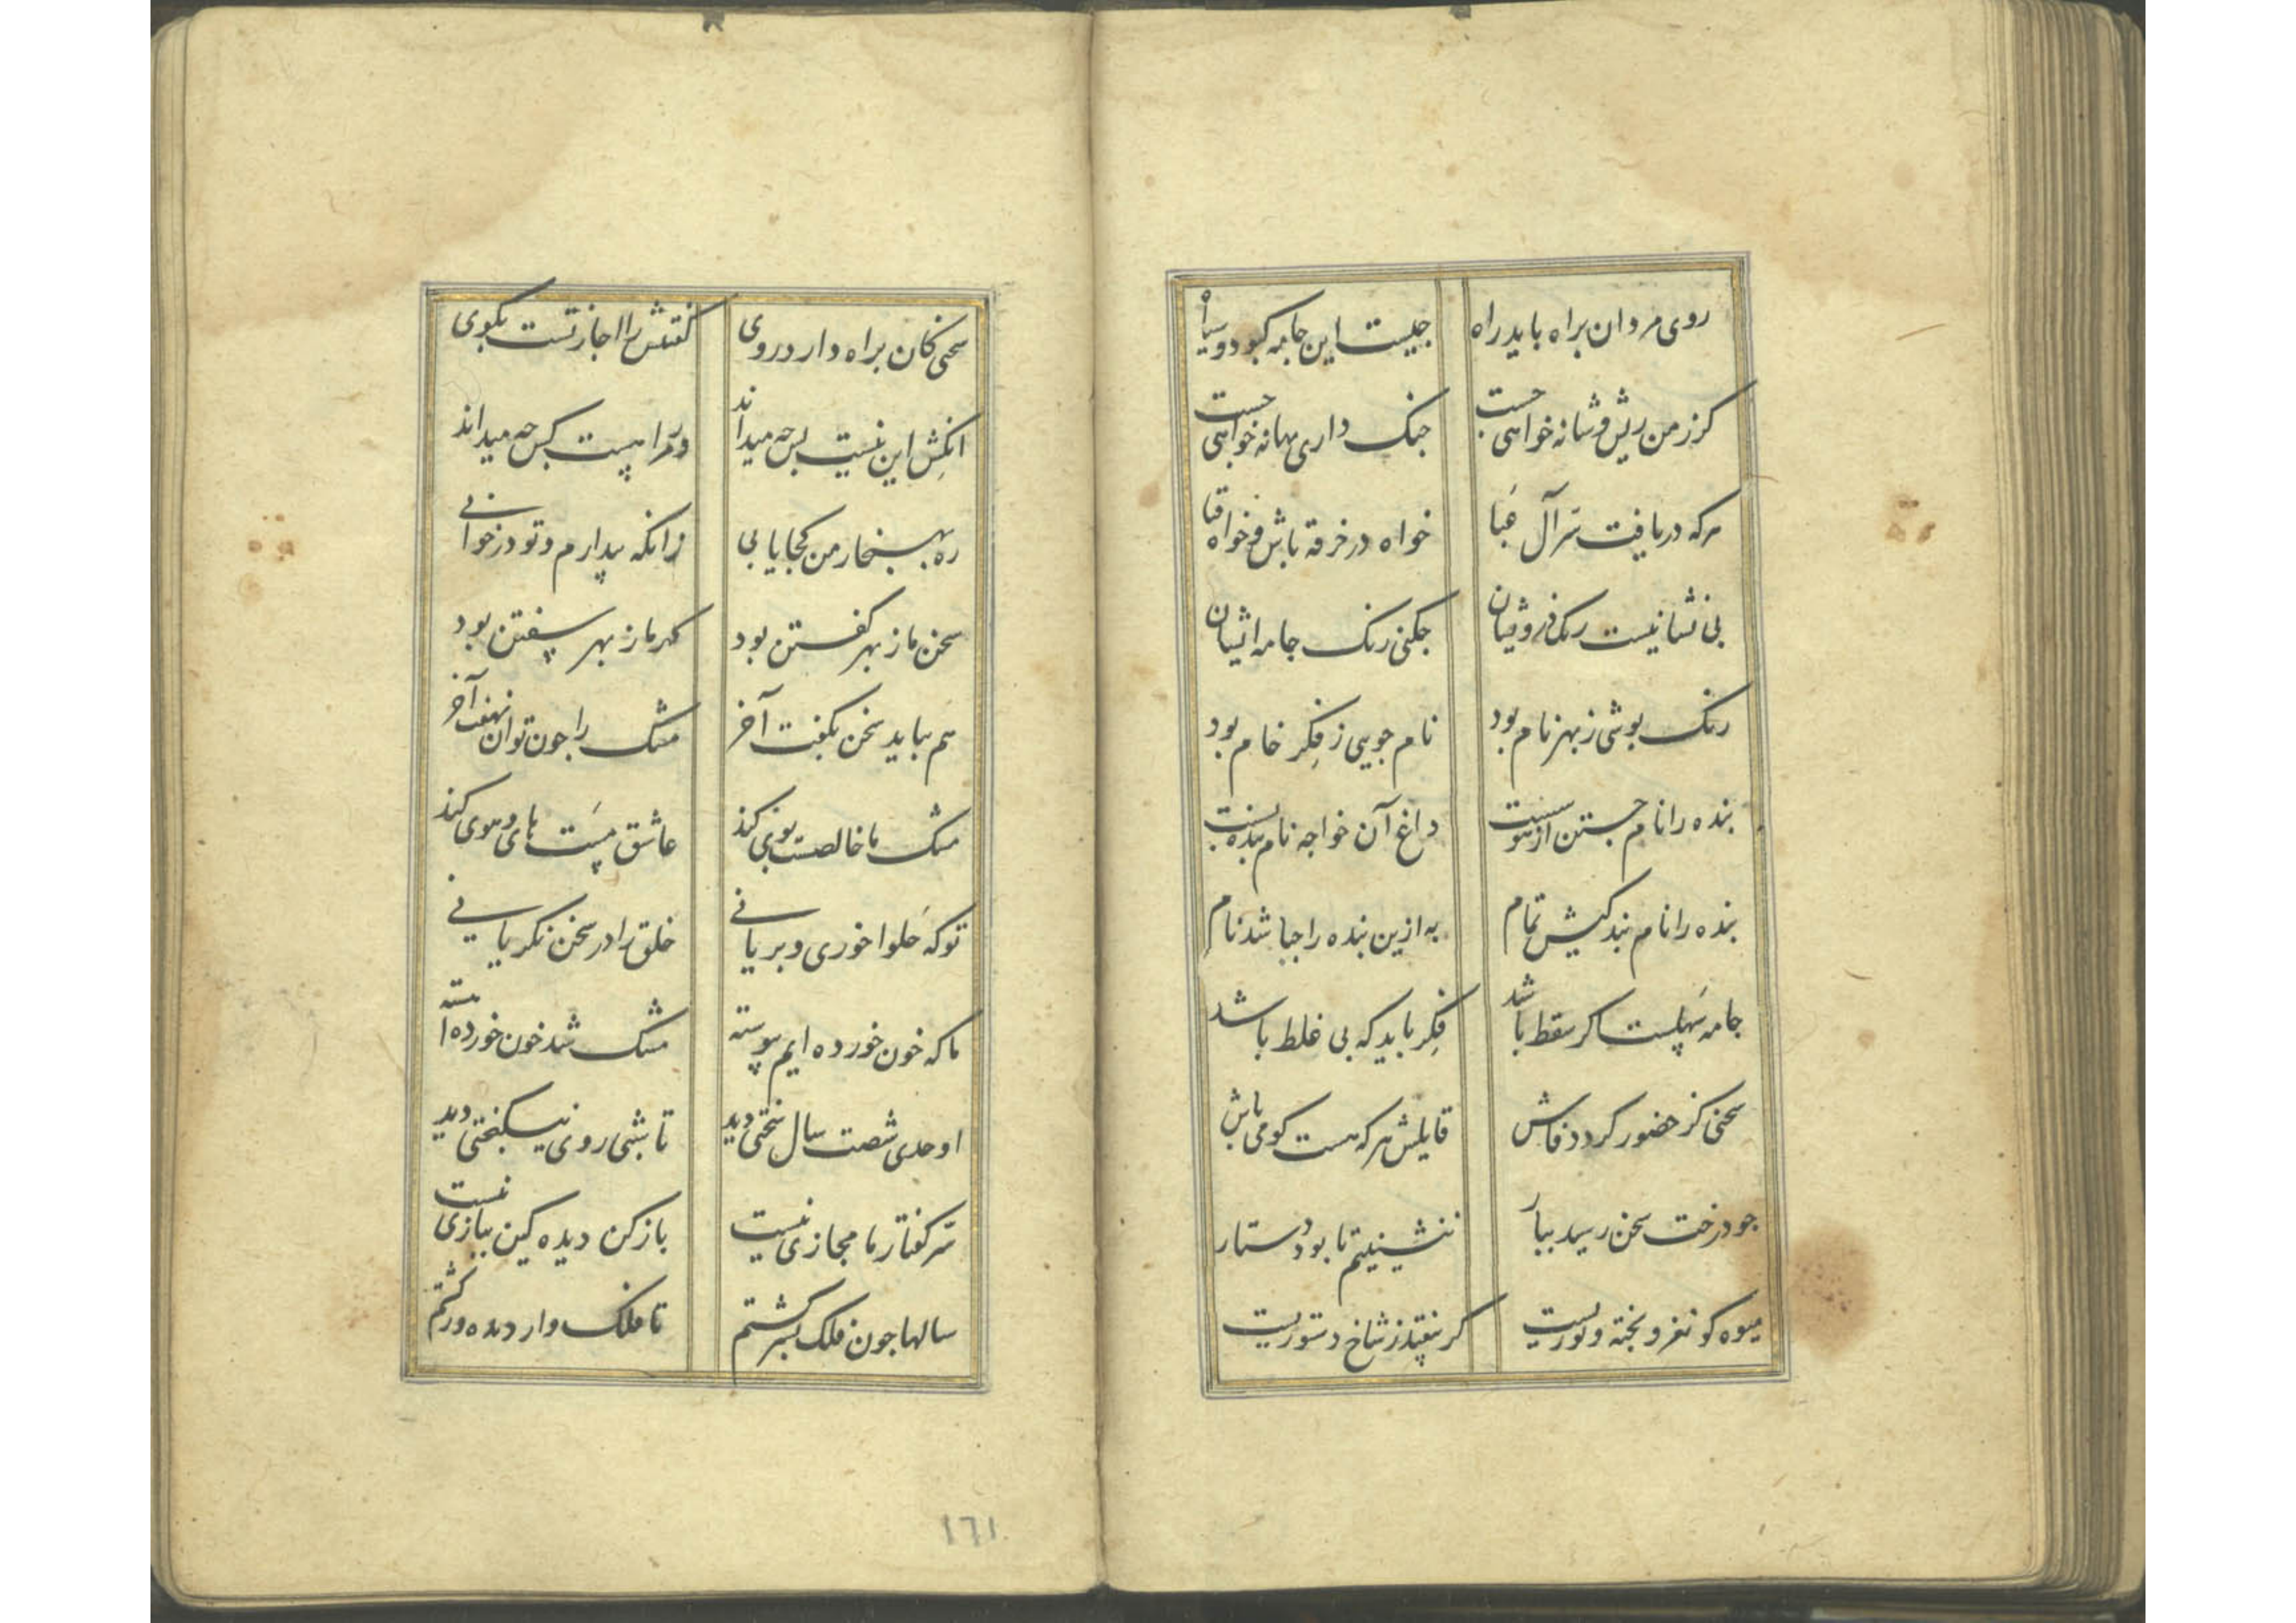 روی مردان براه باید راه جیست این جامه کبود و سیاه
کرز من ریش و شانه خواهی جست جنک داری بهانه خواهی جست
هرکه دریافت سر آل عبا خواه در خرقه باش و خواه قبا
بی نشانیست رنک درویشان جکنی رنک جامه ایشان
رنک بوشی ز بهر نام بود نام جویی ز فکر خام بود
بنده را نام جستن از هوسست داغ آن خواجه نام بنده بسست
بنده را نام بندکیش تمام به ازین بنده را جباشد نام
جامه سهلست اکر سقط باشد فکر باید که بی غلط باشد
سخنی کز حضور کردد فاش قایلش هرکه هست کو می باش
جو درخت سخن رسید ببار ننشینیم تا بود دستار
میوه کو نغز و بخته و نوریست کر نیفتد ز شاخ دستوریست
سخنی کان براه دارد روی کفتنش را اجازتست بکوی
انکش این نیست بس جه میداند ورترا هست کس جه میداند
ره بهنجار من کجا یابی زانکه بیدارم و تو در خوابی
سخن ما ز بهر کفتن بود کهر ما ز بهر سفتن بود
هم بباید سخن بکفت آخر مشک را جون توان نهفت آخر
مشک ما خالصست بوی کند عاشق مست های و هوی کند
تو که حلوا خوری و بریانی خلق را در سخن بکریانی
ما که خون خورده ایم پیوسته مشک شد خون خورده آهسته
اوحدی شصت سال سختی دید تا شبی روی نیکبختی دید
سر کفتار ما مجازی نیست باز کن دیده کین ببازی نیست
سالها جون فلک بسر کشتم تا فلک وار دیده ور کشتم
۱۶۱